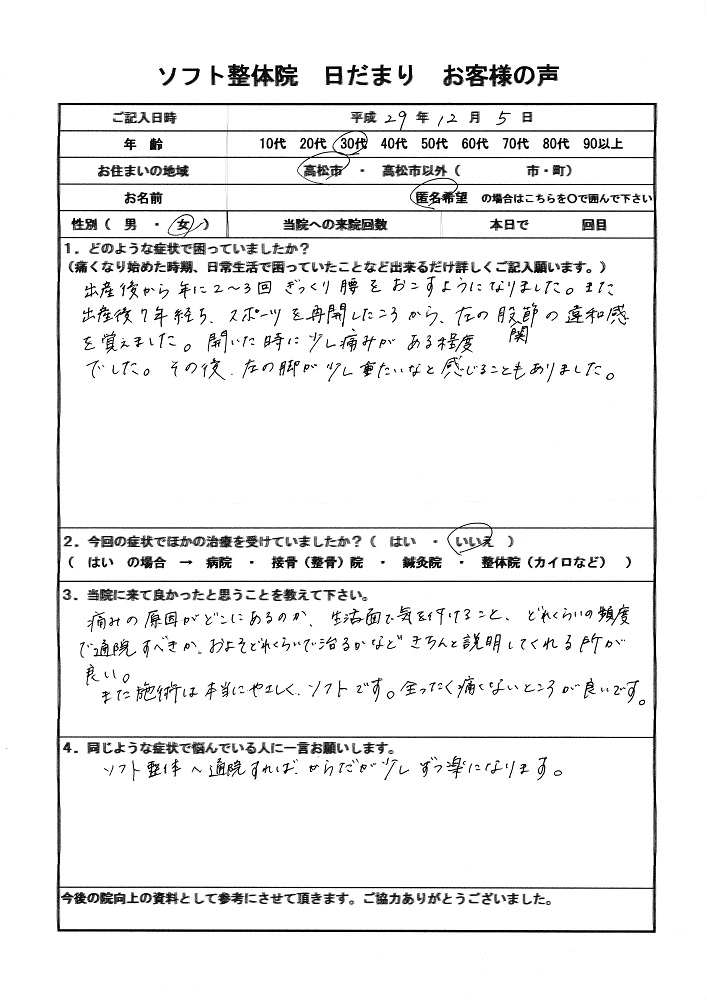 ソフト整体院　日だまり　お客様の声
ご記入日時　平成 29 年 12 月 5 日
年　齢　10代　20代　30代　40代　50代　60代　70代　80代　90以上
お住まいの地域　高松市　・　高松市以外（　　　市・町）
お名前　匿名希望　の場合はこちらを○で囲んで下さい
性別（　男　・　女　）　当院への来院回数　本日で　　回目
１．どのような症状で困っていましたか？
（痛くなり始めた時期、日常生活で困っていたことなど出来るだけ詳しくご記入願います。）
出産後から年に2～3回 ぎっくり腰をおこすようになりました。また
出産後7年経ち、スポーツを再開したころから、左の股関節の違和感
を覚えました。開いた時に少し痛みがある程度
でした。その後、左の脚が少し重たいなと感じることもありました。
２．今回の症状でほかの治療を受けていましたか？（　はい　・　いいえ　）
（　はい　の場合　→　病院　・　接骨（整骨）院　・　鍼灸院　・　整体院（カイロなど）　）
３．当院に来て良かったと思うことを教えて下さい。
痛みの原因がどこにあるのか、生活面で気を付けること、どれくらいの頻度
で通院すべきか、およそどれくらいで治るかなどきちんと説明してくれる所が
良い。
また施術は本当にやさしく、ソフトです。全ったく痛くないところが良いです。
４．同じような症状で悩んでいる人に一言お願いします。
ソフト整体へ通院すれば、からだが少しずつ楽になります。
今後の院向上の資料として参考にさせて頂きます。ご協力ありがとうございました。